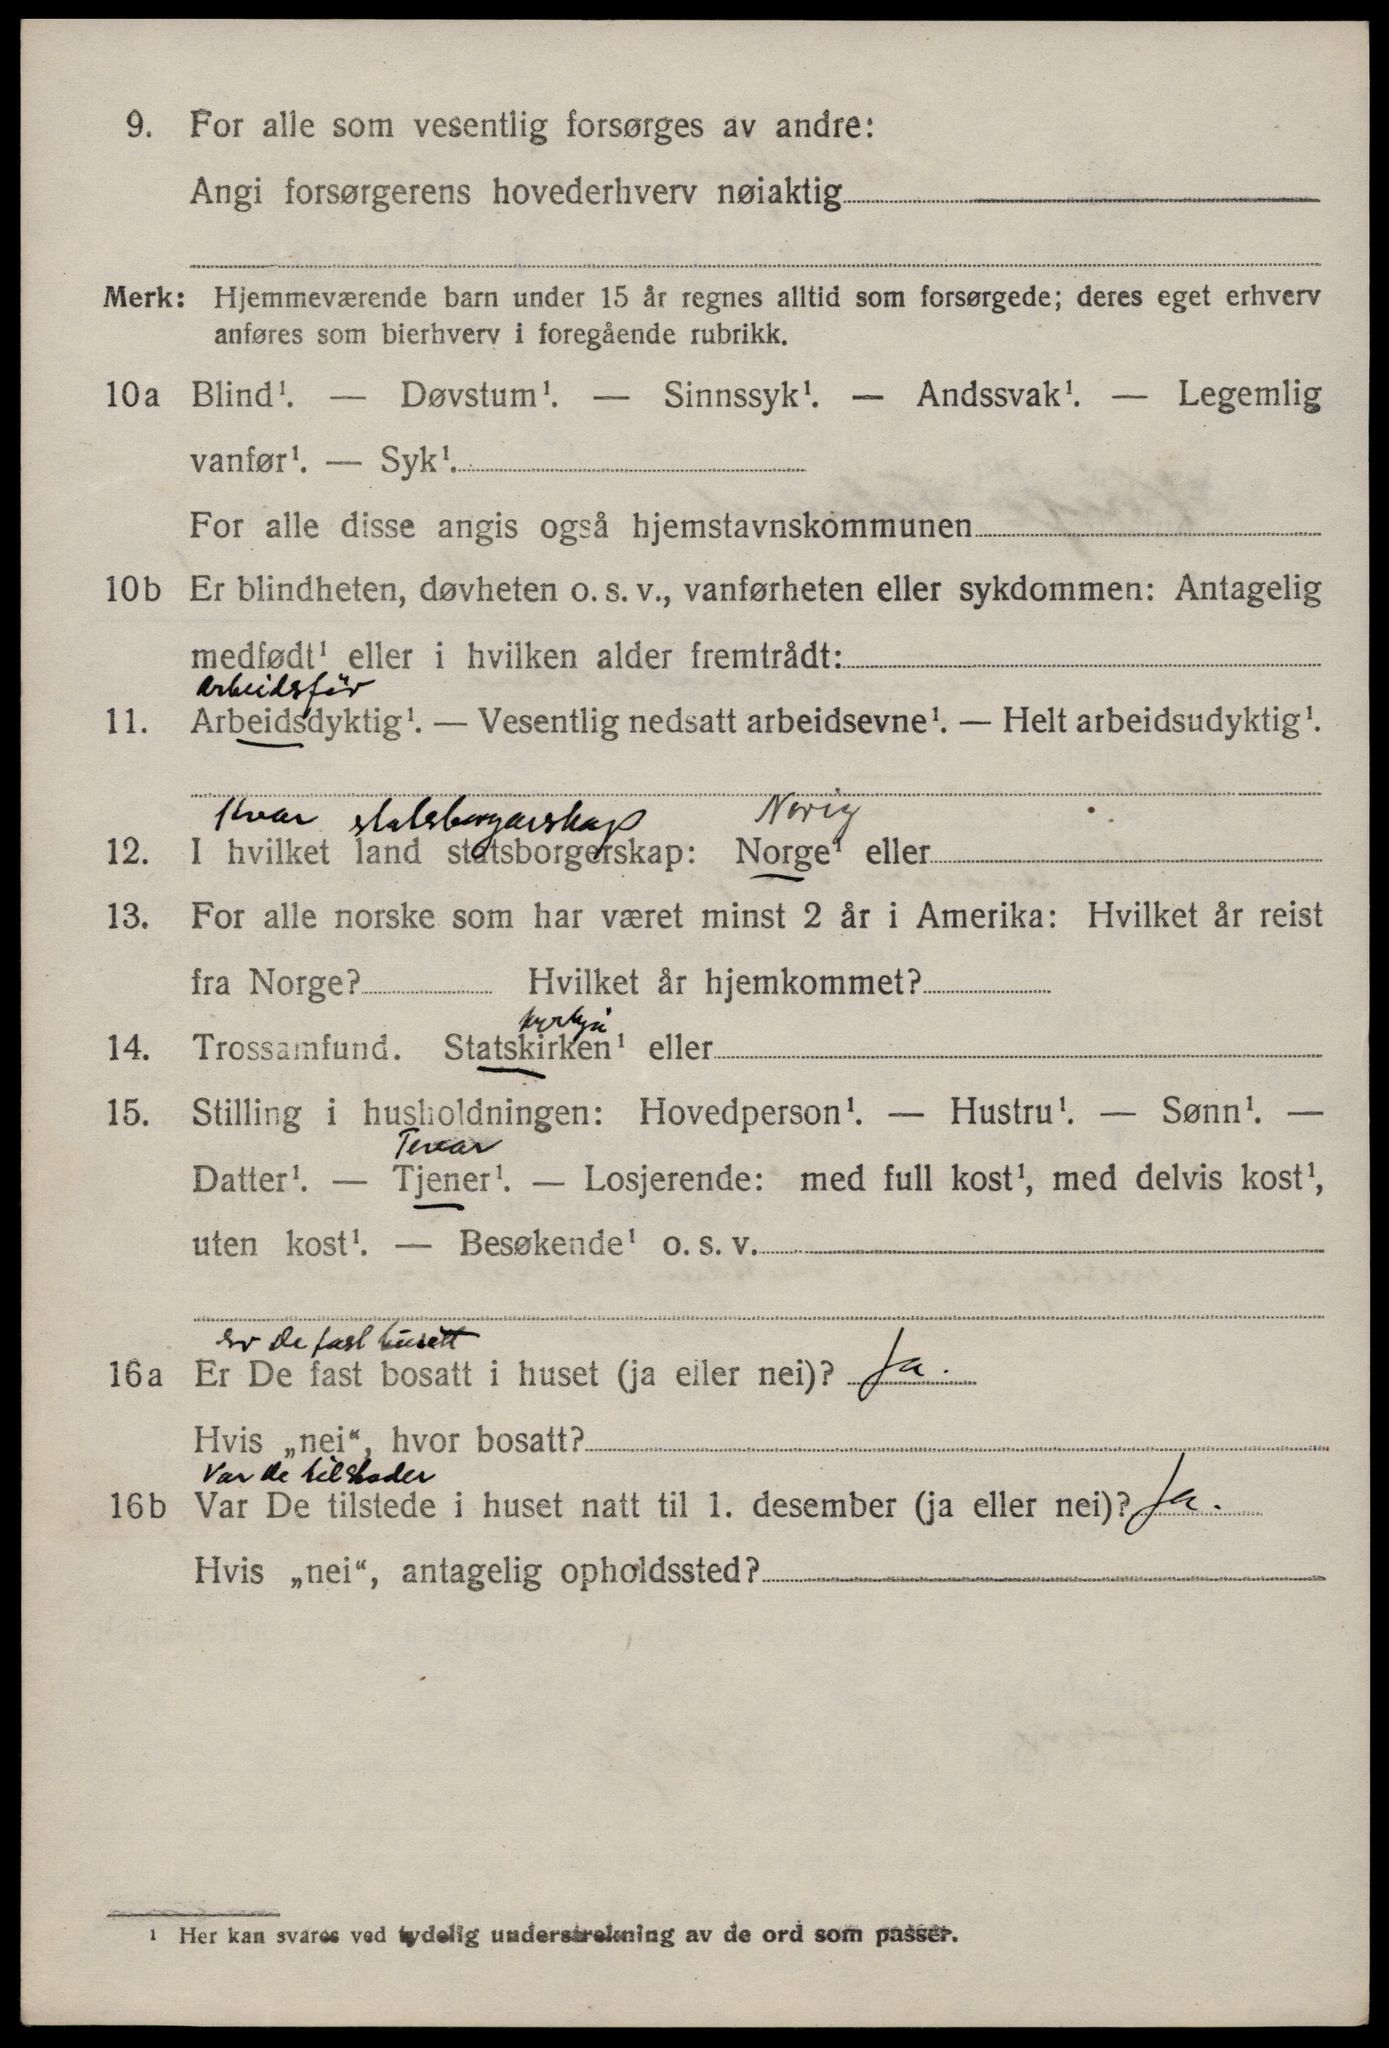 9. For alle som vesentlig forsørges av andre:
Angi forsørgerens hovederhverv nøiaktig
Merk: Hjemmeværende barn under 15 år regnes alltid som forsørgede; deres eget erhverv
anføres som bierhverv i foregående rubrikk.
10a Blind¹. — Døvstum¹. — Sinnssyk¹. — Andssvak¹. — Legemlig
vanfør¹. — Syk¹.
For alle disse angis også hjemstavnskommunen
10b Er blindheten, døvheten o. s. v., vanførheten eller sykdommen: Antagelig
medfødt¹ eller i hvilken alder fremtrådt:
arbeidsfør
11. Arbeidsdyktig¹. — Vesentlig nedsatt arbeidsevne¹. — Helt arbeidsudyktig¹.
Kvar statsborgarskap Norig
12. I hvilket land statsborgerskap: Norge¹ eller
13. For alle norske som har været minst 2 år i Amerika: Hvilket år reist
fra Norge? Hvilket år hjemkommet?
kyrkja
14. Trossamfund. Statskirken¹ eller
15. Stilling i husholdningen: Hovedperson¹. — Hustru¹. — Sønn¹. —
Tenar
Datter¹. — Tjener¹. — Losjerende: med full kost¹, med delvis kost¹,
uten kost¹. — Besøkende¹ o. s. v.
er De fast busett
16a Er De fast bosatt i huset (ja eller nei)? Ja.
Hvis „nei“, hvor bosatt?
Var De tilstader
16b Var De tilstede i huset natt til 1. desember (ja eller nei)? Ja.
Hvis „nei“, antagelig opholdssted?
¹ Her kan svares ved tydelig understrekning av de ord som passer.